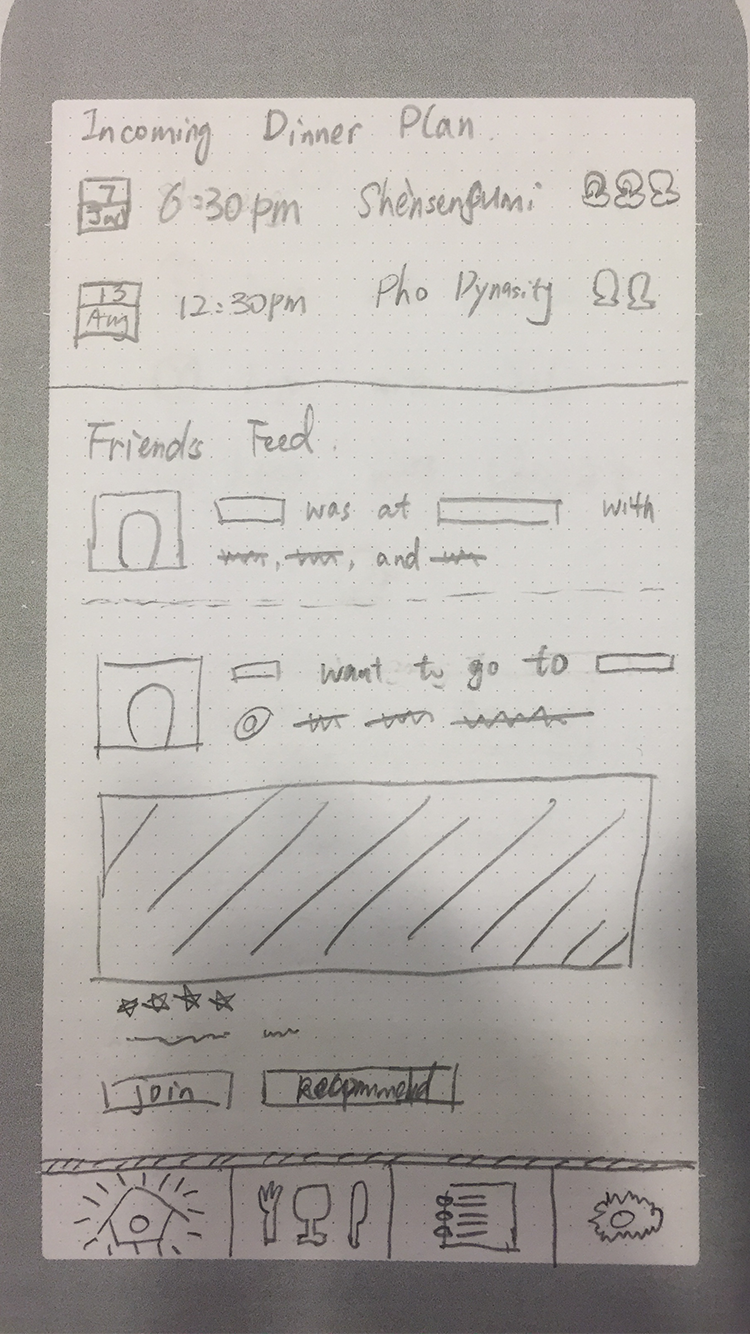 Incoming Dinner Plan
7
Jan 6:30pm Shensenfumi
13
Aug 12:30pm Pho Dynasity
Friends Feed.
was at with
, , and
want to go to
join Recommend